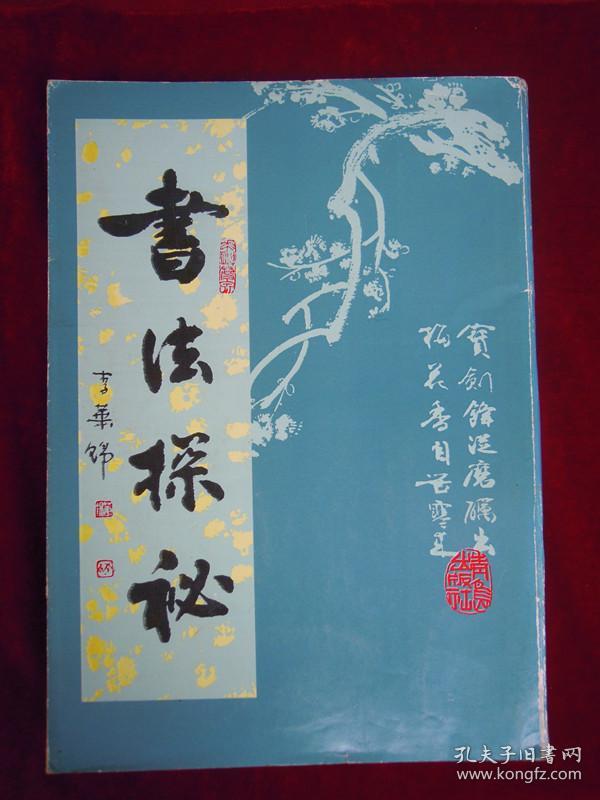 書法探秘
李葉錦
寶劍鋒從磨礪出
梅花香自苦寒來
青島出版社
孔夫子旧書网
www.kongfz.com